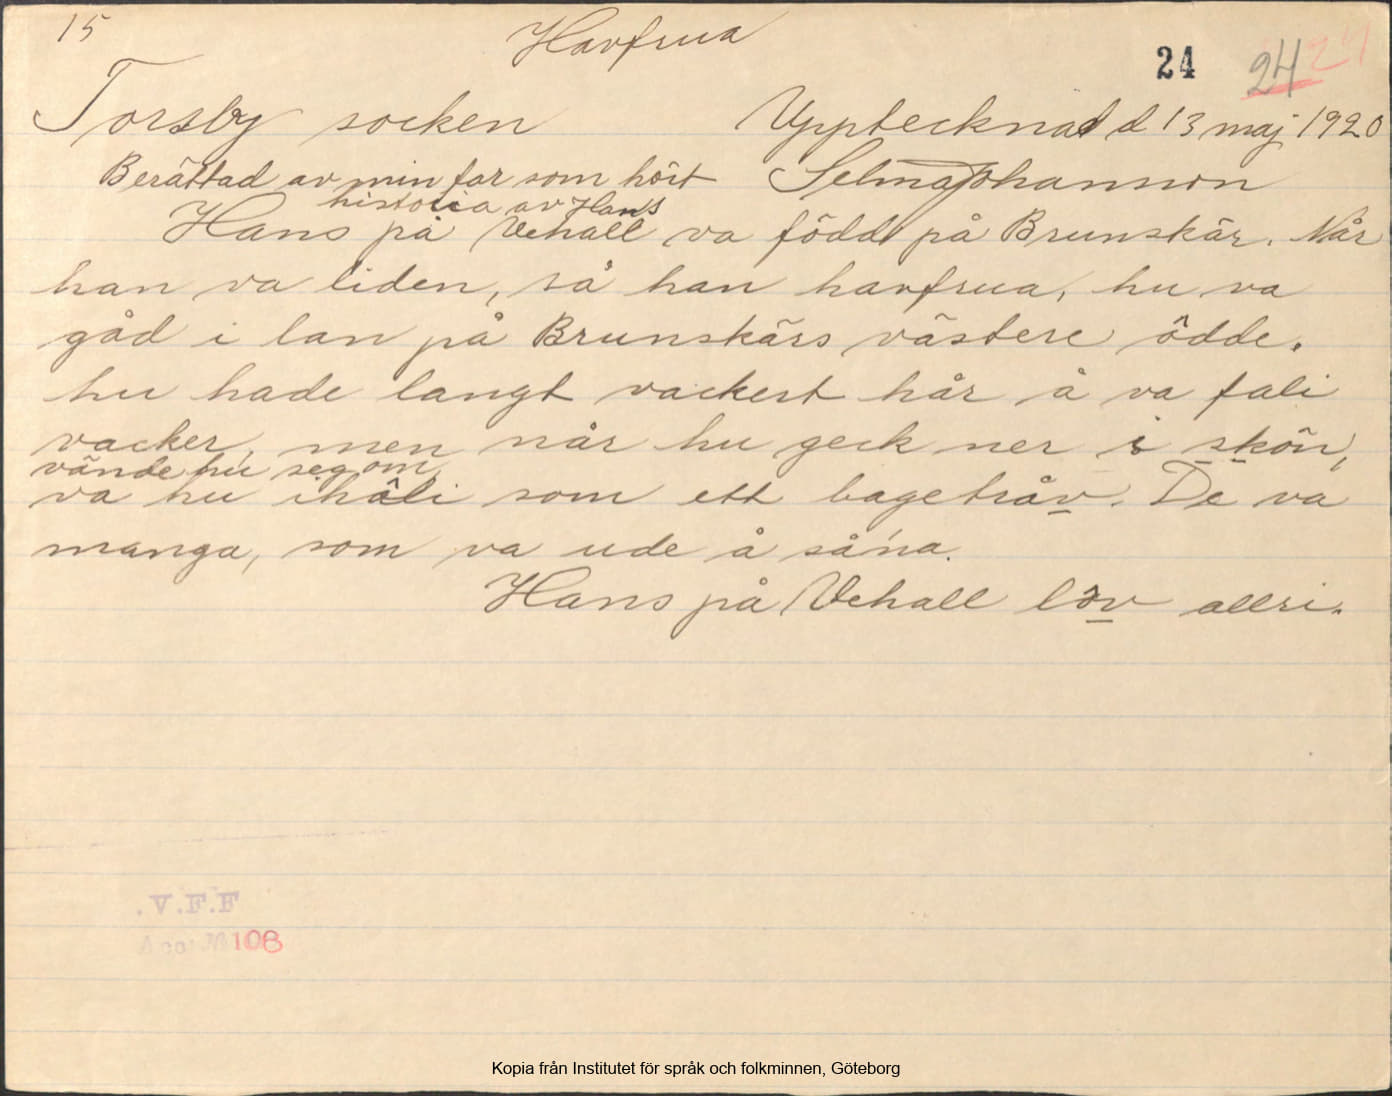 15
Havfrua
24 24 24
Torsby socken Upptecknad d 13 maj 1920
Berättad av min far som hört Selma Johansson
historia av Hans
Hans på Vehall va född på Brunskär. Når
han va liden, så han havfrua, hu va
gåd i lan på Brunskärs västere ödde.
hu hade langt vackert hår å va fali
vacker, men når hu geck ner i skön,
vände hu seg om,
va hu ihåli som ett bagetråv. De va
manga, som va ude å såna.
Hans på Vehall löv allri.
V.F.F
Acc. M 108
Kopia från Institutet för språk och folkminnen, Göteborg